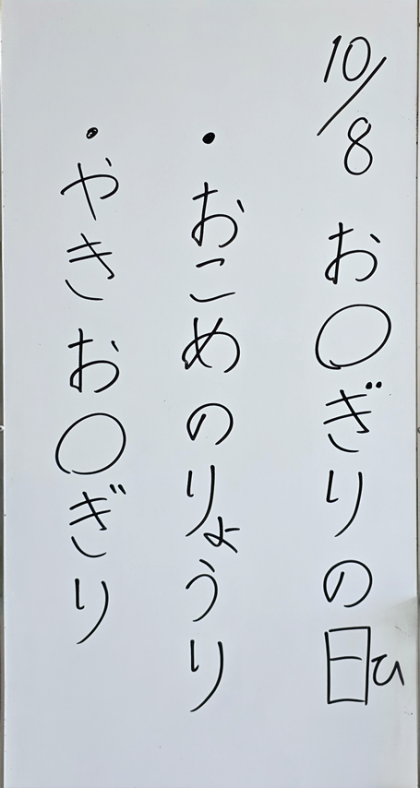 10/8 お○ぎりの日ひ
・おこめのりょうり
・やきお○ぎり